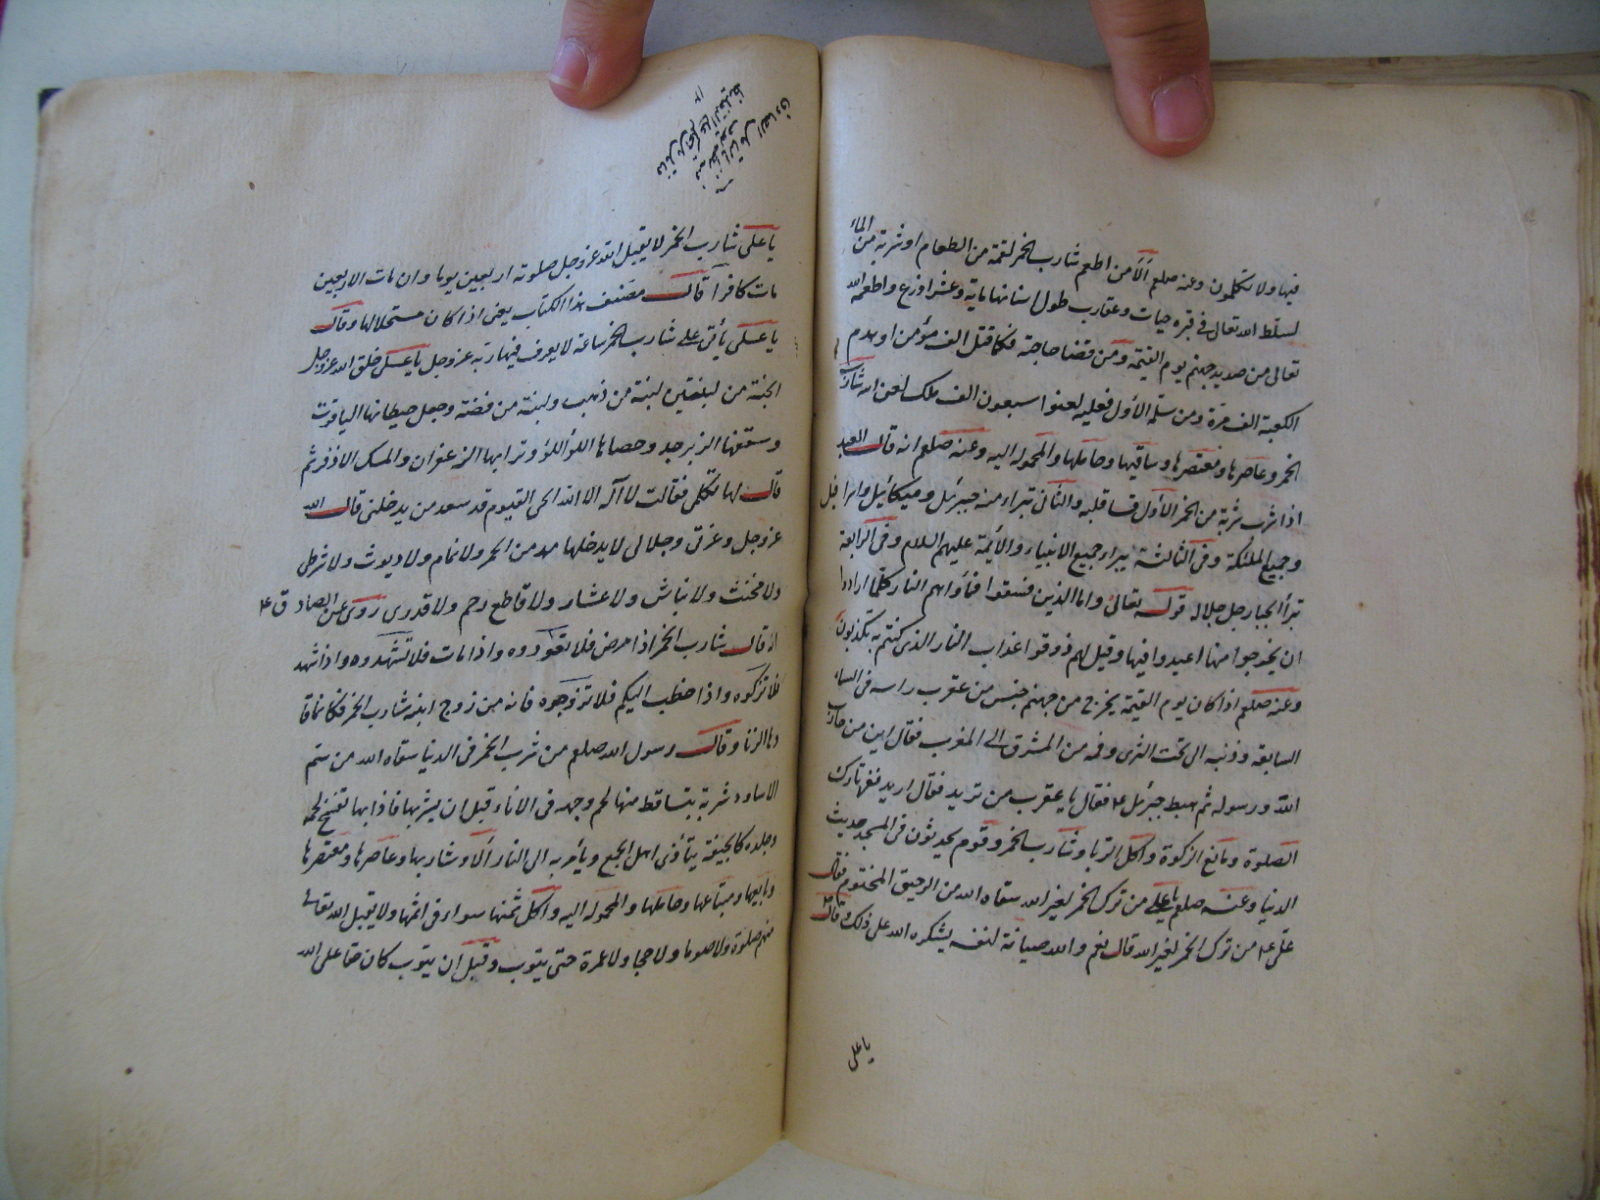 فيها ولا تكلمون وعنه صلعم ألا من اطعم شارب الخمر لقمة من الطعام او شربة من الماء
لسلّط الله تعالى في قبره حيات وعقارب طول اسنانها ماية وعشر اذرع واطعمه الله
تعالى من صديد جهنم يوم القيمة ومن قضا حاجته فكانما قتل الف مؤمن او هدم
الكعبة الف مرة ومن سلّم الأول فعليه لعنوا سبعون الف ملك لعن الله شارب
الخمر وعاصرها ومعتصرها وساقيها وحاملها والمحمولة اليه وعنه صلعم انه قال العبد
اذا شرب شربة من الخمر الأول قسا قلبه والثانى تبراء منه جبرئيل وميكائيل واسرافيل
وجميع الملئكة وفى الثالثة يبراء جميع الانبياء والأئمة عليهم السلام وفى الرابعة
تبرأ الجبار جل جلاله قوله تعالى واما الذين فسقوا فمأواهم النار كلما ارادوا
ان يخرجوا منها اعيدوا فيها وقيل لهم ذوقوا عذاب النار الذى كنتم به تكذبون
وعنه صلعم اذا كان يوم القيمة يخرج من جهنم جنس من عقرب راسه فى السماء
السابعة وذنبه الى تحت الثرى وفمه من المشرق الى المغرب فقال اين من حارب
الله ورسوله ثم هبط جبرئيل ع فقال يا عقرب من تريد فقال اريد نفر تارك
الصلوة ومانع الزكوة وآكل الربا وشارب الخمر وقوم يحدثون فى المسجد حديث
الدنيا وعنه صلعم يا على من ترك الخمر لغير الله سقاه الله من الرحيق المختوم فقال
على ع من ترك الخمر لغير الله قال نعم والله صيانة لنفسه يشكره الله على ذلك وقال
يا على
يا على شارب الخمر لا يقبل الله عز وجل صلوته اربعين يوما وان مات الاربعين
مات كافرا قال مصنف هذا الكتاب يعنى اذا كان مستحلا لها وقال
يا على يأتى على شارب الخمر ساعة لا يعرف فيها ربه عز وجل يا على خلق الله عز وجل
الجنة من لبنتين لبنة من ذهب ولبنة من فضة وجعل حيطانها الياقوت
وسقفها الزبرجد وحصاها اللؤلؤ وترابها الزعفران والمسك الاذفر ثم
قال لها تكلمى فقالت لا اله الا الله الحى القيوم قد سعد من يدخلنى قال الله
عز وجل وعزتى وجلالى لا يدخلها مدمن الخمر ولا نمام ولا ديوث ولا شرطى
ولا مخنث ولا نباش ولا عشار ولا قاطع رحم ولا قدرى روى عن الصادق ع
انه قال شارب الخمر اذا مرض فلا تعودوه واذا مات فلا تشهدوه واذا شهد
فلا تزكوه واذا خطب اليكم فلا تزوجوه فانه من زوج ابنته شارب الخمر فكانما قا
دها الزنا وقال رسول الله صلعم من شرب الخمر فى الدنيا سقاه الله من سم
الاساود شربة يتساقط منها لحم وجهه فى الاناء قبل ان يشربها فاذا بها تفسخ لحمه
وجلده كالجيفة يتأذى اهل الجمع ويأمر به الى النار ألا وشاربها وعاصرها ومعتصرها
وبايعها ومبتاعها وحاملها والمحمولة اليه وآكل ثمنها سواء فى اثمها ولا يقبل الله تعالى
منهم صلوة ولا صوما ولا حجا ولا عمرة حتى يتوب وقبل ان يتوب كان حقا على الله